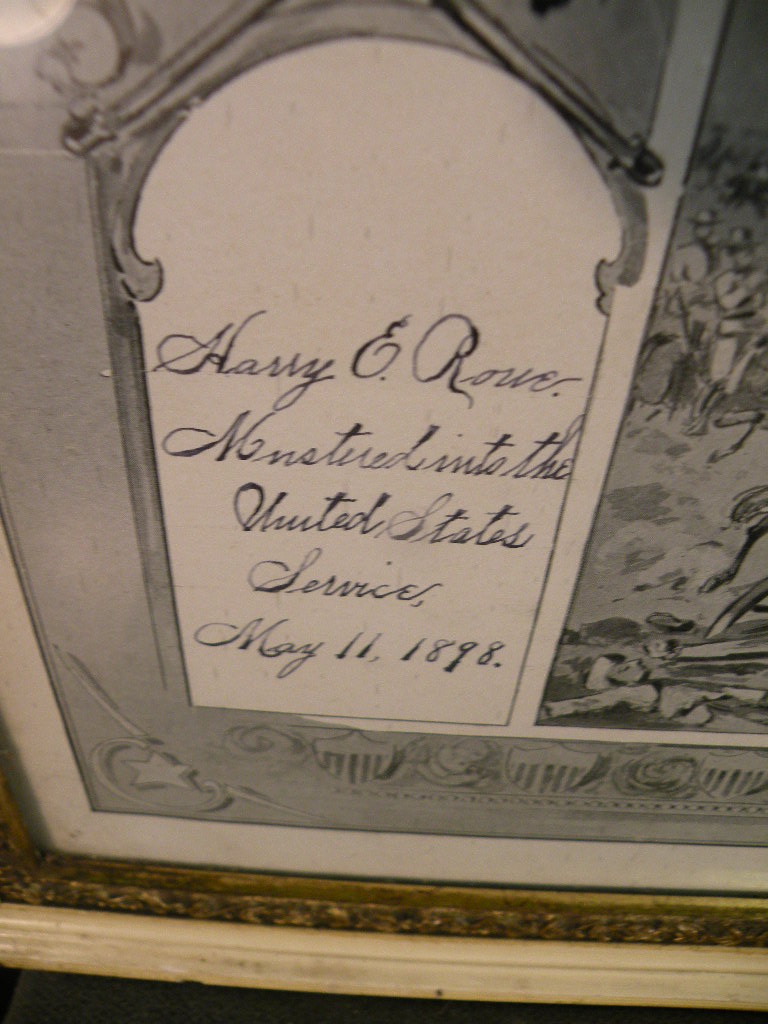 Harry E. Rowe.
Mustered into the
United States
Service,
May 11, 1898.